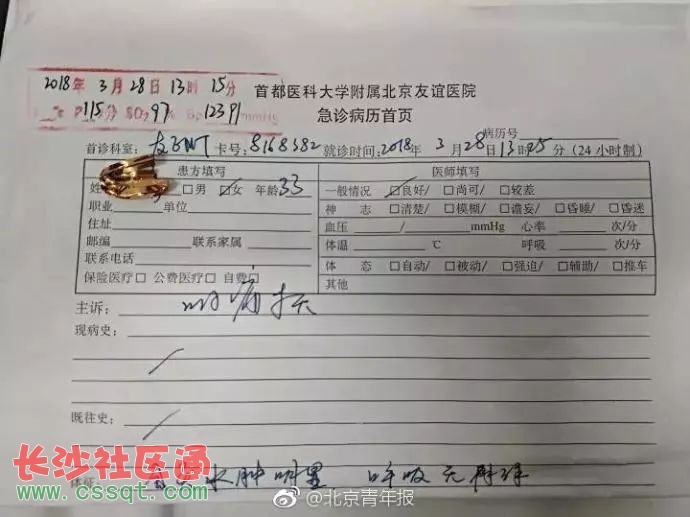 2018年3月28日13时15分
P115分 SO₂97% Bp 123/91mmHg
首都医科大学附属北京友谊医院
急诊病历首页
病历号
首诊科室： 卡号：8168382 就诊时间：2018年3月28日13时25分（24小时制）
患方填写
姓 □男 ☑女 年龄33
职业 单位
住址
邮编 联系家属
联系电话
保险医疗□ 公费医疗□ 自费□
医师填写
一般情况 ☑良好/ □尚可/ □较差
神志 □清楚/ □模糊/ □谵妄/ □昏睡/ □昏迷
血压 / mmHg 心率 次/分
体温 ℃ 呼吸 次/分
体态 □自动/ □被动/ □强迫/ □辅助/ □推车
其他
主诉：
现病史：
既往史：
体征： 水肿明显 呼吸无
长沙社区通
www.cssqt.com
@北京青年报